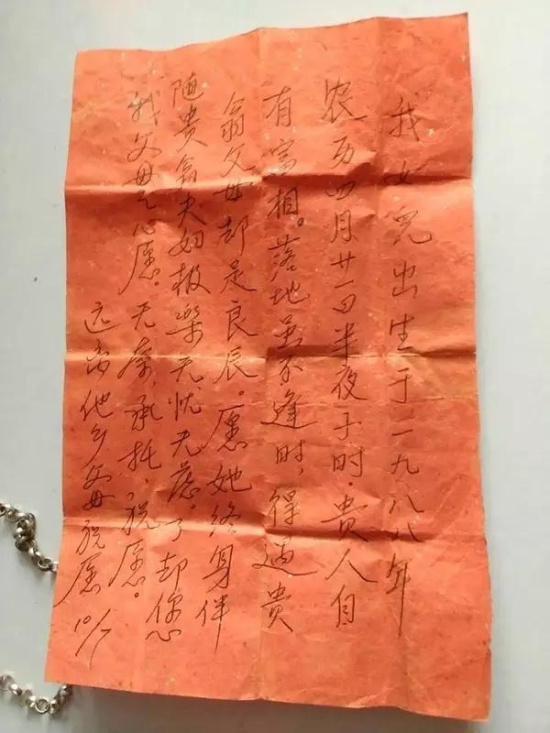 我女儿出生于二九八八年
农历四月廿一日半夜子时·贵人自
有富相。落地虽不逢时，得遇贵
翁父母却是良辰。愿她终身伴
随贵翁夫妇极乐无忧无虑。了却你心
我父母之心愿。无奈，承托，脱愿。
远离他乡父母脱愿 10/7